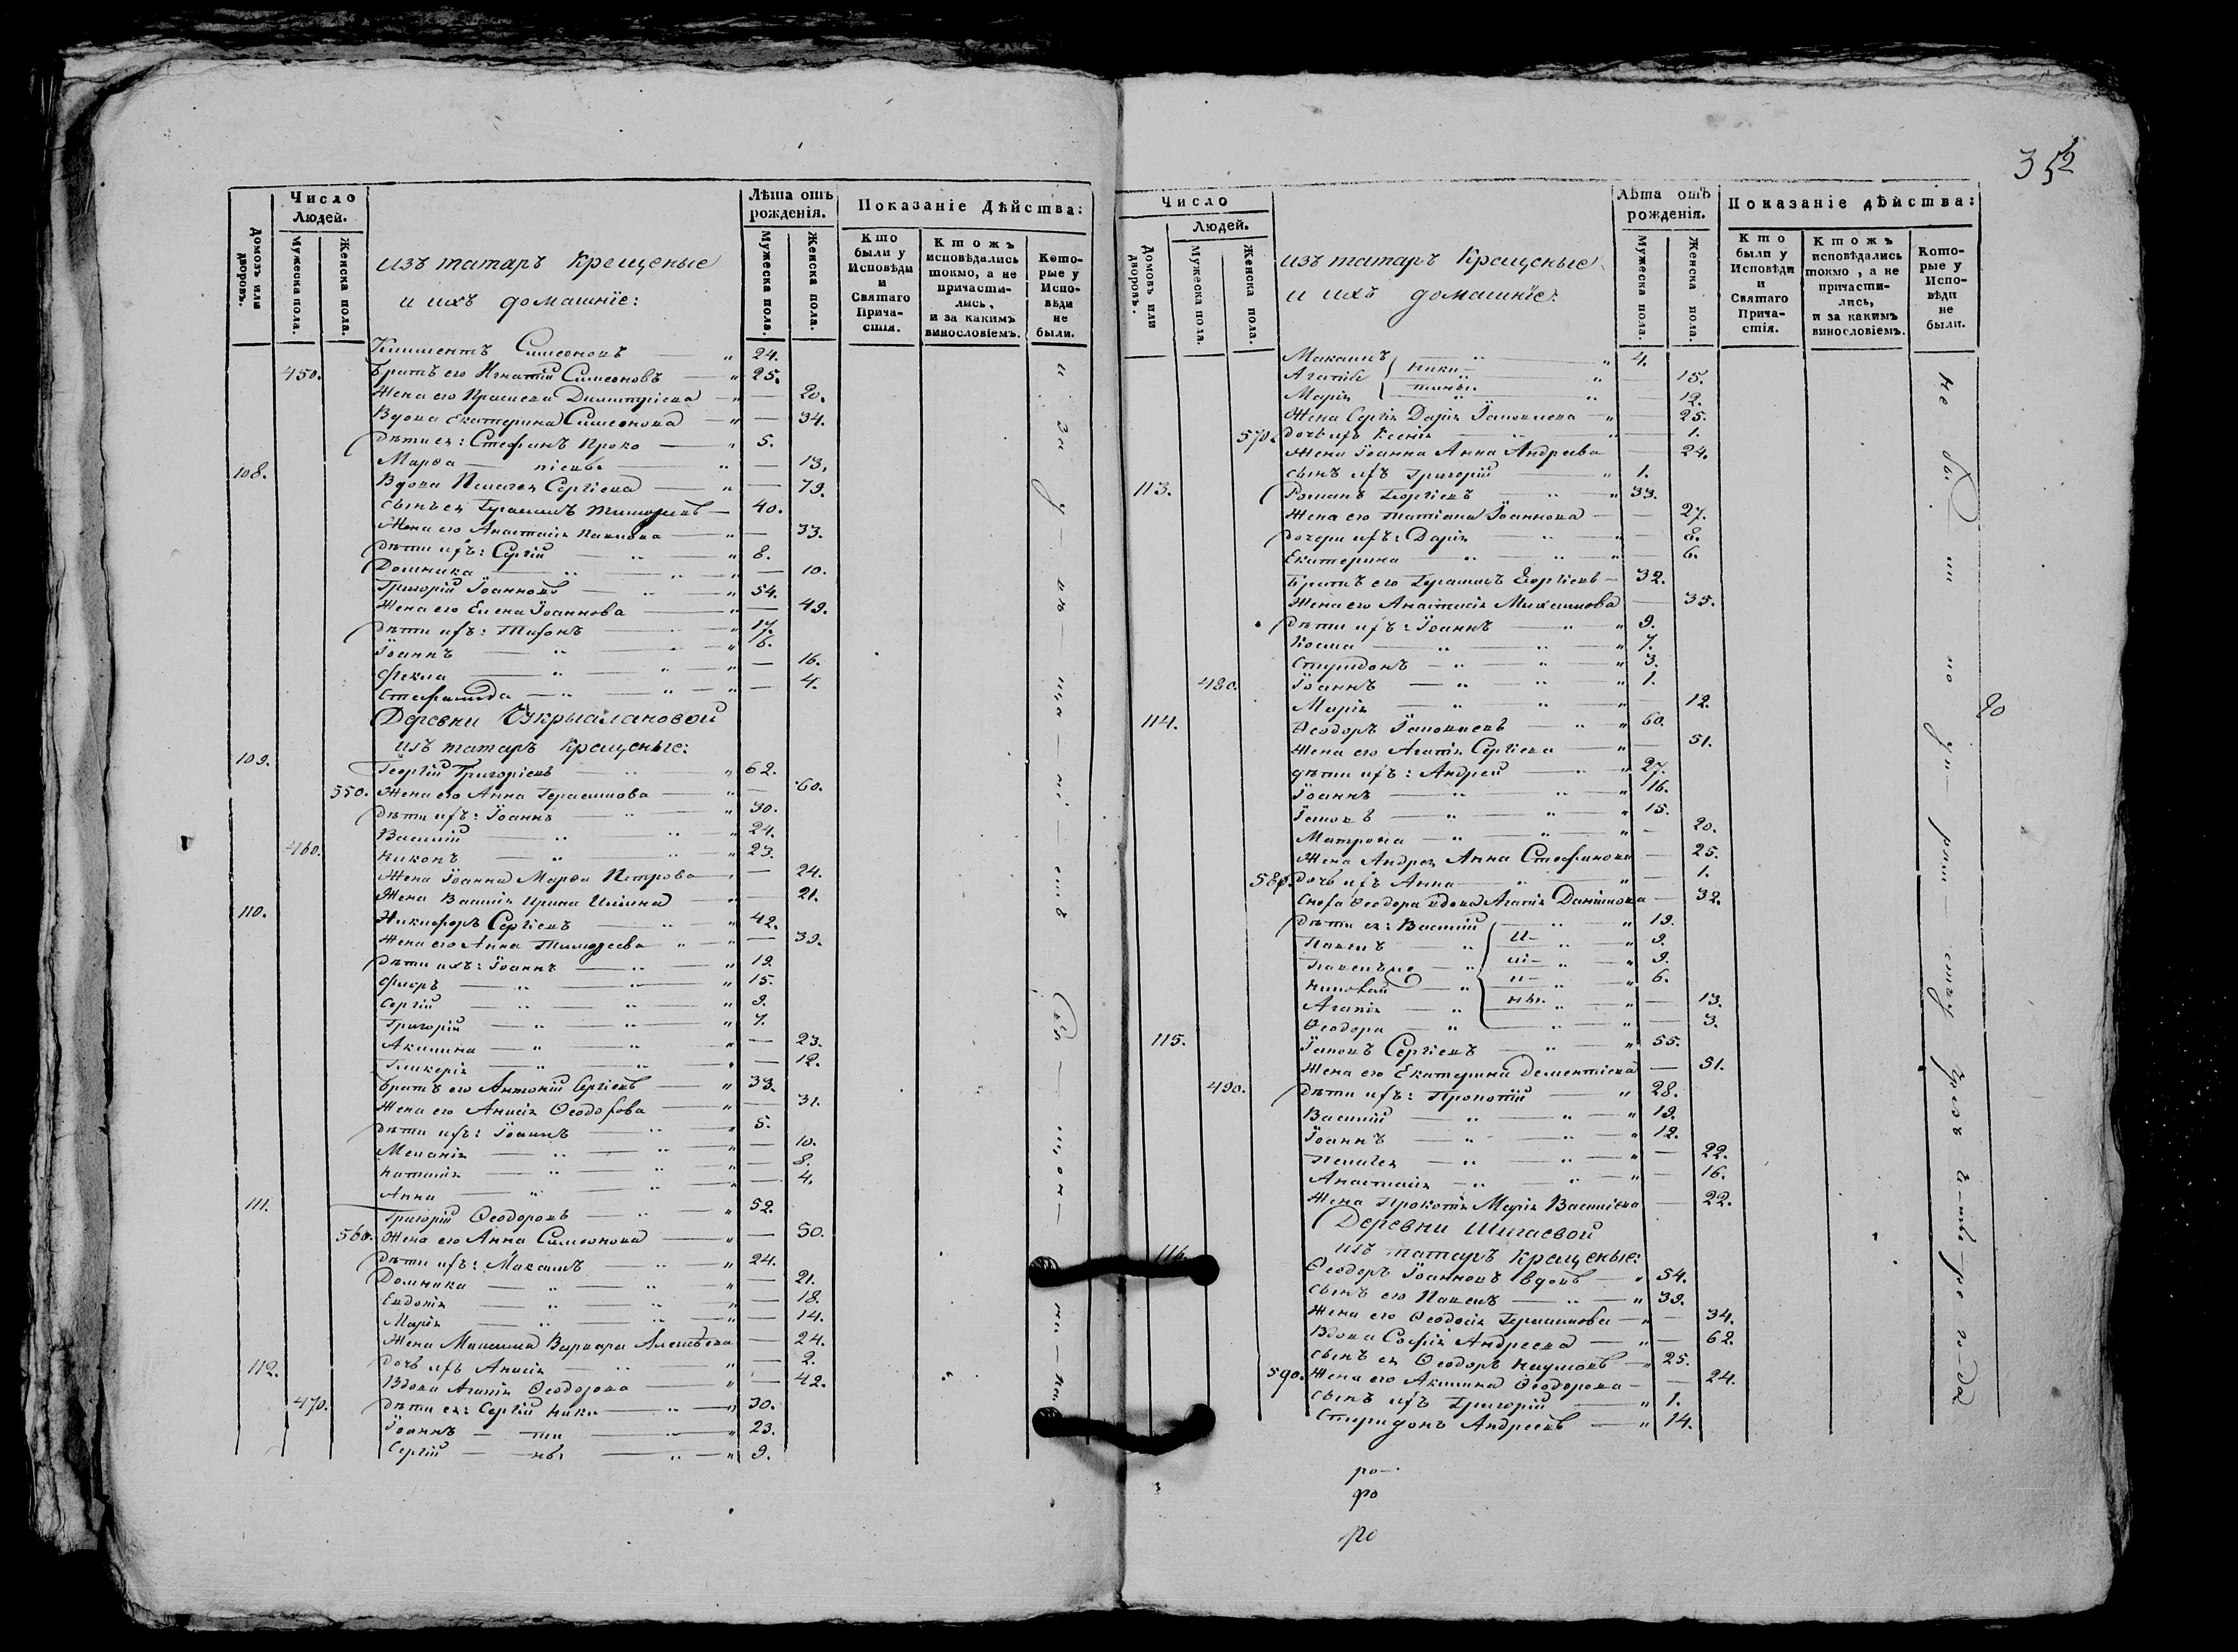 352
Число
Людей.
Домовъ или дворовъ.
Мужеска пола.
Женска пола.
изъ татаръ крещеные
и ихъ домашніе:
Лѣта отъ рожденія.
Мужеска пола.
Женска пола.
Показаніе Дѣйства:
Кто были у Исповѣди и Святаго Прича-стія.
Ктожъ исповѣдались токмо, а не причасти-лись, и за какимъ винословіемъ.
Кото-рые у Испо-вѣди не были.
Климентъ Симеоновъ — " 24.
450. Братъ его Игнатій Симеоновъ — " 25.
Жена его Димитріева — " — 20.
Вдова Екатерина Симеонова — " — 34.
Дѣти ея: Стефанъ Проко — " 5.
Марѳа — піевы — " — 13.
108. Вдова Пелагея Сергіева — " — 79.
Сынъ ея Герасимъ — 40.
Жена его Анастасія Павлова — " — 33.
Дѣти ихъ: Сергій — " 8.
Домника — " — 10.
Григорій Іоанновъ — " 54.
Жена его Елена Іоаннова — " — 49.
Дѣти ихъ: Тихонъ — " 17.
Іоаннъ — " 6.
Фекла — " — 16.
Стефанида — " — 4.
Деревни
изъ татаръ крещеные:
109. Георгій Григоріевъ — " 62.
550. Жена его Анна Герасимова — " — 60.
Дѣти ихъ: Іоаннъ — " 30.
Василій — " 24.
460. Никонъ — " 23.
Жена Іоанна Марѳа Петрова — " — 24.
Жена Василія Ирина Ильина — " — 21.
110. Никифоръ Сергіевъ — " 42.
Жена его Анна Тимофеева — " — 39.
Дѣти ихъ: Іоаннъ — " 19.
Флоръ — " 15.
Сергій — " 9.
Григорій — " 7.
Акилина — " — 23.
Гликерія — " — 12.
Братъ его Антоній Сергіевъ — " 33.
Жена его Анисія Ѳеодорова — " — 31.
Дѣти ихъ: — " 5.
Меланія — " — 10.
Наталія — " — 8.
Анна — " — 4.
111. Григорій Ѳеодоровъ — " 52.
560. Жена его Анна Симеонова — " — 50.
Дѣти ихъ: Максимъ — " 24.
Домника — " — 21.
Евдокія — " — 18.
Марія — " — 14.
Жена Максима Варвара Алексѣева — 24.
Дочь ихъ Анисія — " — 2.
112. Вдова Агапія Ѳеодорова — " — 42.
470. Дѣти ея: Сергій Ники — " 30.
Іоаннъ — ти — " 23.
Сергій — ны — " 9.
Число
Людей.
Домовъ или дворовъ.
Мужеска пола.
Женска пола.
изъ татаръ крещеные
и ихъ домашніе:
Лѣта отъ рожденія.
Мужеска пола.
Женска пола.
Показаніе дѣйства:
Кто были у Исповѣди и Святаго Прича-стія.
Ктожъ исповѣдались токмо, а не причасти-лись, и за какимъ винословіемъ.
Кото-рые у Испо-вѣди не были.
Максимъ — " 4.
Агапія Ники — " — 15.
Марія тины — " — 12.
Жена Сергія Дарія Іаковлева — " — 25.
570. Дочь ихъ Ксенія — " — 1.
Жена Іоанна Анна Андреева — 24.
Сынъ ихъ Григорій — " 1.
113. Романъ Георгіевъ — " 33.
Жена его Татіана Іоаннова — — 27.
Дочери ихъ: Дарія — " — 8.
Екатерина — " — 6.
Братъ его Герасимъ Георгіевъ — 32.
Жена его Анастасія Михаилова — 35.
Дѣти ихъ: Іоаннъ — " 9.
Косма — " 7.
Спиридонъ — " 3.
480. Іоаннъ — " 1.
Марія — " — 12.
114. Ѳеодоръ Іаковлевъ — " 60.
Жена его Агапія Сергіева — " — 51.
Дѣти ихъ: Андрей — " 27.
Іоаннъ — " 16.
Іаковъ — " 15.
Матрона — " — 20.
Жена Андрея Анна Стефанова — 25.
580. Дочь ихъ Анна — " — 1.
Сноха Ѳеодора вдова Агапія Даніилова — 32.
Дѣти ея: Василій — " 19.
Павелъ — И- — " 9.
ілі- — " 9.
Николай — и- — " 6.
Агапія — ны — " — 13.
Ѳеодора — " — 3.
115. Іаковъ Сергіевъ — " 55.
Жена его Екатерина Дементіева — 51.
490. Дѣти ихъ: Прокопій — " 28.
Василій — " 19.
Іоаннъ — " 12.
Пелагея — " — 22.
Анастасія — " — 16.
Жена Прокопія Марія Василіева — 22.
Деревни Шигаевой
изъ татаръ крещеные:
116. Ѳеодоръ Іоанновъ вдовъ — " 54.
Сынъ его Павелъ — " 39.
Жена его Ѳеодосія Герасимова — " — 34.
Вдова Софія Андреева — " — 62.
Сынъ ея Ѳеодоръ Наумовъ — " 25.
590. Жена его Акилина Ѳеодорова — — 24.
Сынъ ихъ Григорій — " 1.
Спиридонъ Андреевъ — " 14.
ро-
ро
ро